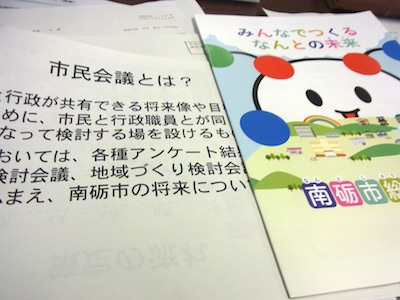 市民会議とは？
と行政が共有できる将来像や目
めに、市民と行政職員とが同
なって検討する場を設けるも
おいては、各種アンケート結
検討会議、地域づくり検討会
まえ、南砺市の将来につい
みんなでつくる
なんとの未来
南砺市総